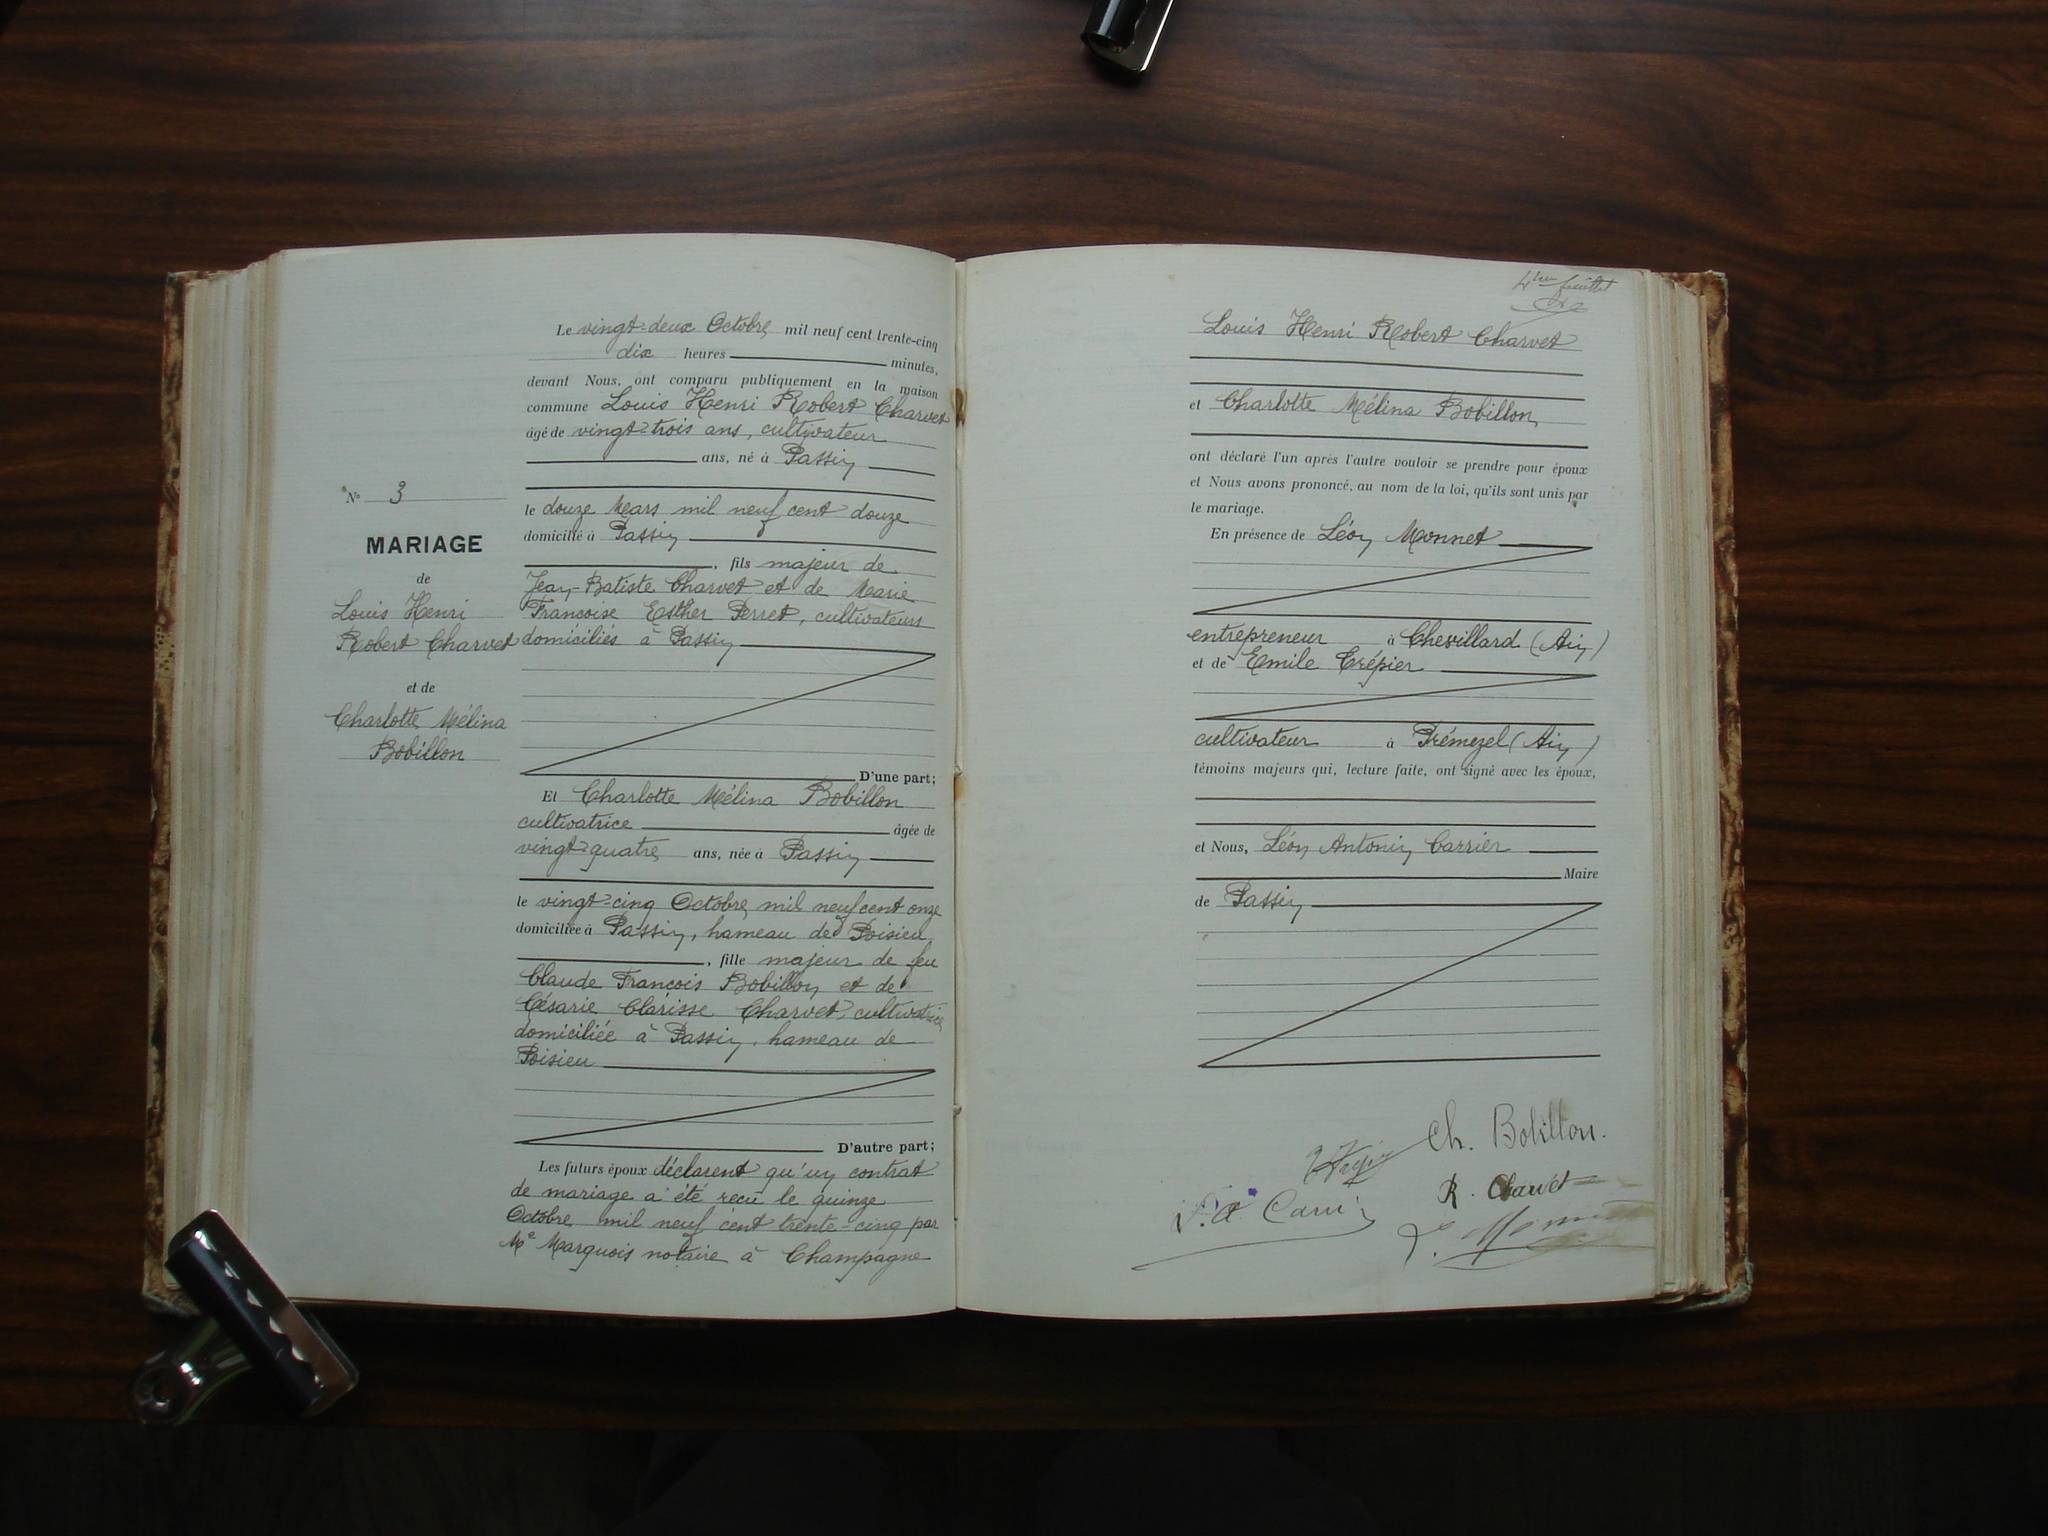 Le vingt-deux Octobre mil neuf cent trente-cinq
dix heures minutes,
devant Nous, ont comparu publiquement en la maison
commune Louis Henri Robert Charvet
âgé de vingt-trois ans, cultivateur
ans, né à Passin
le douze Mars mil neuf cent douze
domicilié à Passin
, fils majeur de
Jean-Batiste Charvet et de Marie
Françoise Esther Perret, cultivateurs
domiciliés à Passin
D'une part;
Et Charlotte Mélina Bobillon
cultivatrice âgée de
vingt-quatre ans, née à Passin
le vingt-cinq Octobre mil neuf cent onze
domiciliée à Passin, hameau de Poisieu
, fille majeur de feu
Claude François Bobillon et de
Césarie Clarisse Charvet, cultivatrice
domiciliée à Passin, hameau de
Poisieu
D'autre part;
Les futurs époux déclarent qu'un contrat
de mariage a été reçu le quinze
Octobre mil neuf cent trente-cinq par
Me Marquois notaire à Champagne
N° 3
MARIAGE
de
Louis Henri
Robert Charvet
et de
Charlotte Mélina
Bobillon
4me feuillet
Louis Henri Robert Charvet
et Charlotte Mélina Bobillon
ont déclaré l'un après l'autre vouloir se prendre pour époux
et Nous avons prononcé, au nom de la loi, qu'ils sont unis par
le mariage.
En présence de Léon Monnet
entrepreneur à Chevillard (Ain)
et de Emile Crépier
cultivateur à Prémezel (Ain)
témoins majeurs qui, lecture faite, ont signé avec les époux,
et Nous, Léon Antonin Carrier
Maire
de Passin
Ch. Bobillon.
R. Charvet